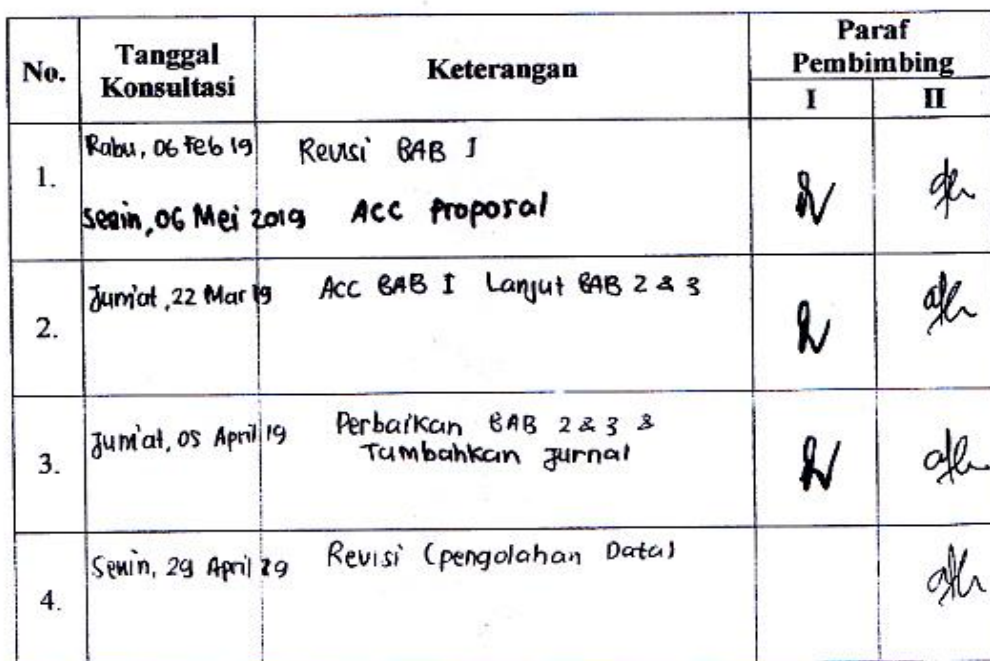 No. Tanggal Konsultasi Keterangan Paraf Pembimbing
I II
1. Rabu, 06 Feb 19 Revisi BAB I
Senin, 06 Mei 2019 ACC Proposal
2. Jum'at, 22 Mar 19 Acc BAB I Lanjut BAB 2 & 3
3. Jum'at, 05 April 19 Perbaikan BAB 2 & 3 &
Tambahkan Jurnal
4. Senin, 29 April 19 Revisi (pengolahan Data)